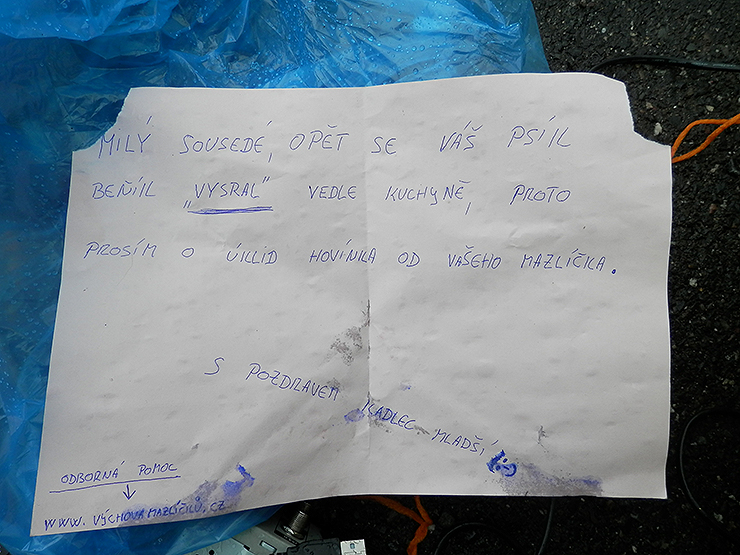 MILÝ SOUSEDÉ, OPĚT SE VÁŠ PSÍK
BEŇÍK „VYSRAL" VEDLE KUCHYNĚ, PROTO
PROSÍM O ÚKLID HOVÍNKA OD VAŠEHO MAZLÍČKA.
S POZDRAVEM KADLEC MLADŠÍ :-)
ODBORNÁ POMOC
↓
WWW.VÝCHOVAMAZLÍČKŮ.CZ